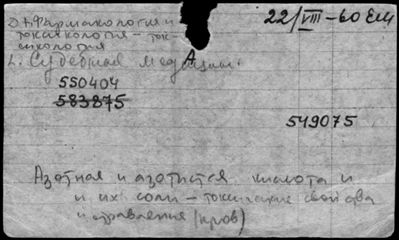 22/VIII-60 Еш
Фармакология и
токсикология - ток-
сикология
2. Судебная медицина.
А
550404
583875
549075
Азотная и азотистая кислота и
и их соли - токсические свойства
и отравления (кров)